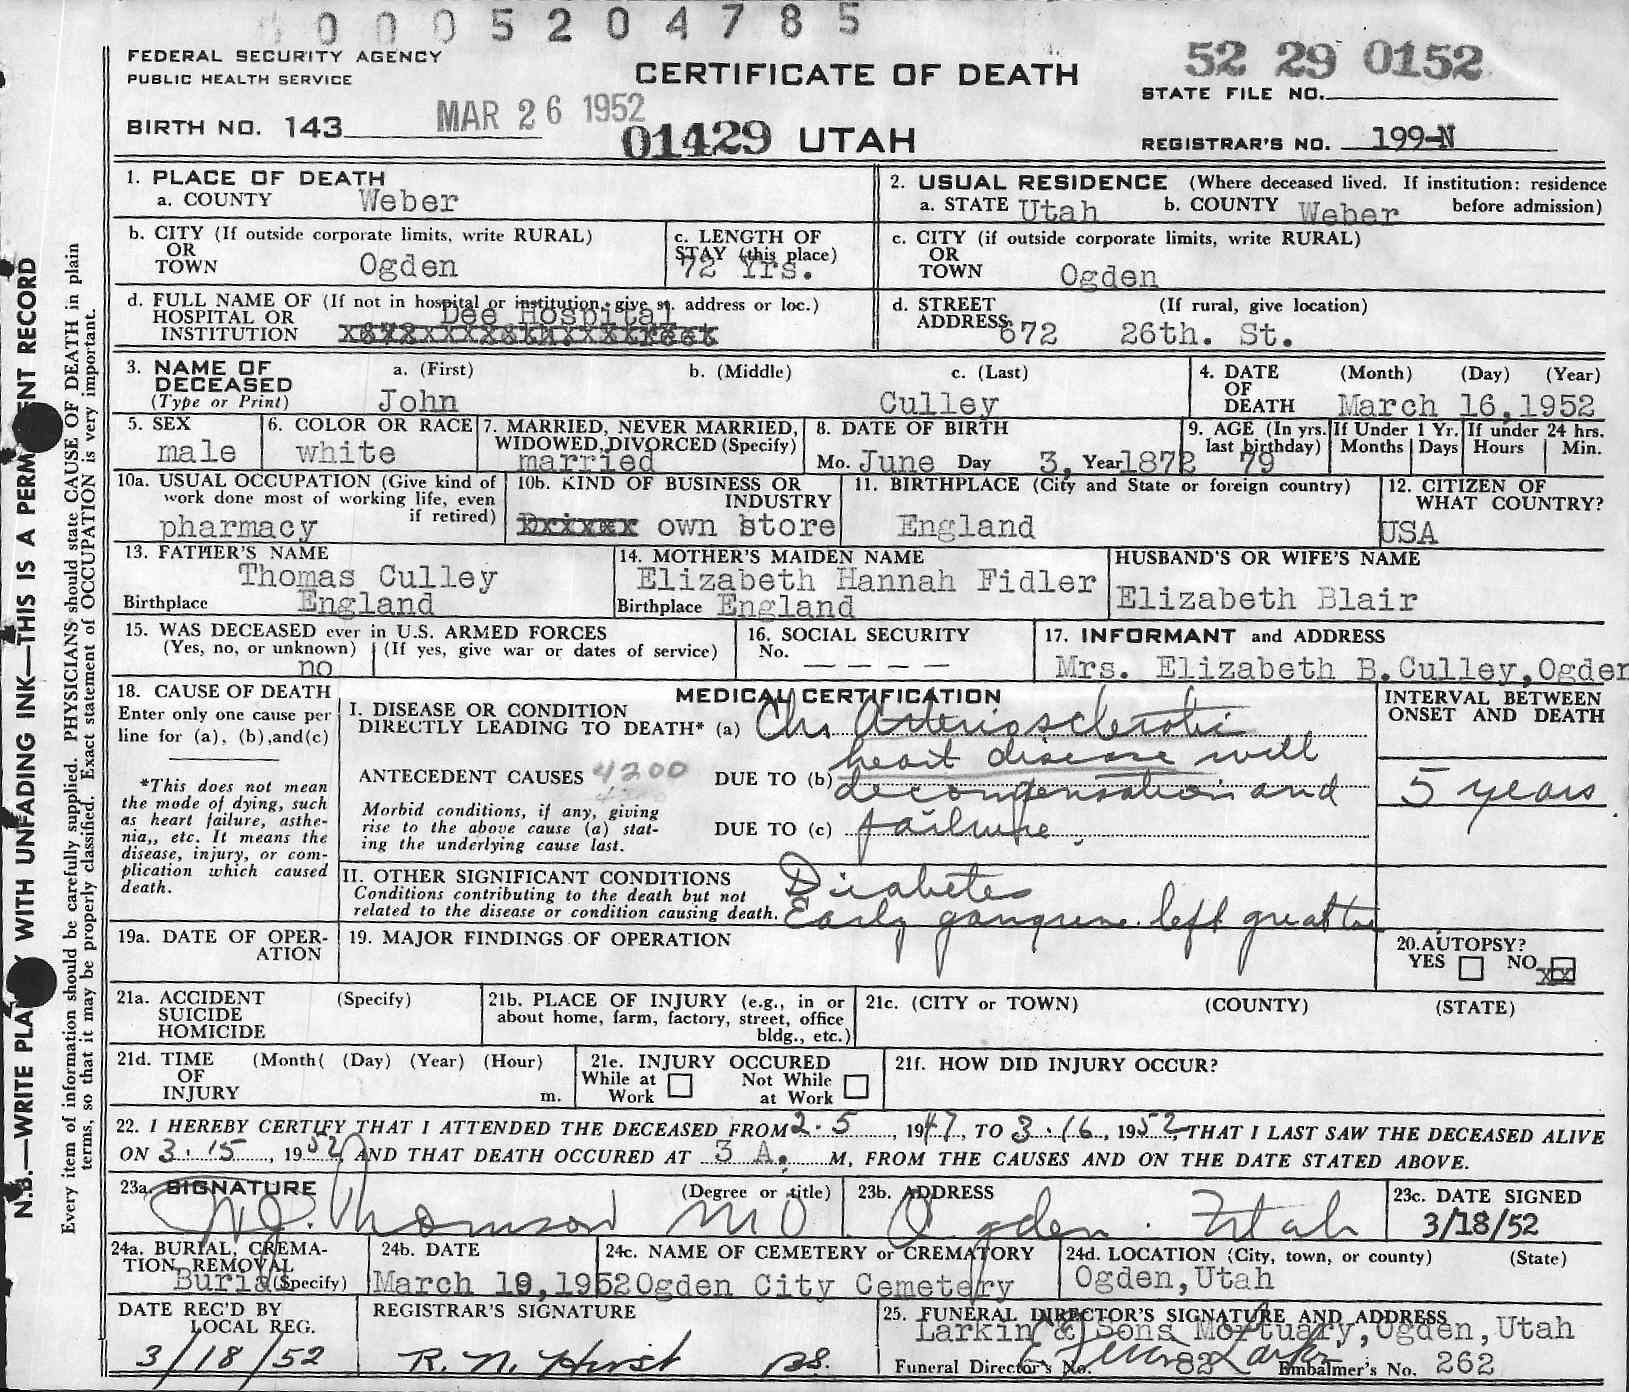 0005204785
FEDERAL SECURITY AGENCY
PUBLIC HEALTH SERVICE
CERTIFICATE OF DEATH
52 29 0152
STATE FILE NO.
BIRTH NO. 143
MAR 26 1952
01429 UTAH
REGISTRAR'S NO. 199-N
1. PLACE OF DEATH
a. COUNTY Weber
2. USUAL RESIDENCE (Where deceased lived. If institution: residence before admission)
a. STATE Utah b. COUNTY Weber
b. CITY (If outside corporate limits, write RURAL)
OR
TOWN Ogden
c. LENGTH OF
STAY (this place)
72 Yrs.
c. CITY (if outside corporate limits, write RURAL)
OR
TOWN Ogden
d. FULL NAME OF (If not in hospital or institution, give st. address or loc.)
HOSPITAL OR
INSTITUTION
Dee Hospital
d. STREET (If rural, give location)
ADDRESS 672 26th. St.
3. NAME OF
DECEASED
(Type or Print)
a. (First) b. (Middle) c. (Last)
John Culley
4. DATE (Month) (Day) (Year)
OF
DEATH March 16, 1952
5. SEX
male
6. COLOR OR RACE
white
7. MARRIED, NEVER MARRIED,
WIDOWED, DIVORCED (Specify)
married
8. DATE OF BIRTH
Mo. June Day 3, Year 1872
9. AGE (In yrs.
last birthday)
79
If Under 1 Yr.
Months Days
If under 24 hrs.
Hours Min.
10a. USUAL OCCUPATION (Give kind of
work done most of working life, even
if retired)
pharmacy
10b. KIND OF BUSINESS OR
INDUSTRY
own store
11. BIRTHPLACE (City and State or foreign country)
England
12. CITIZEN OF
WHAT COUNTRY?
USA
13. FATHER'S NAME
Thomas Culley
Birthplace England
14. MOTHER'S MAIDEN NAME
Elizabeth Hannah Fidler
Birthplace England
HUSBAND'S OR WIFE'S NAME
Elizabeth Blair
15. WAS DECEASED ever in U.S. ARMED FORCES
(Yes, no, or unknown) (If yes, give war or dates of service)
no
16. SOCIAL SECURITY
No. — — — —
17. INFORMANT and ADDRESS
Mrs. Elizabeth B.Culley,Ogden
18. CAUSE OF DEATH
Enter only one cause per
line for (a), (b),and(c)
*This does not mean
the mode of dying, such
as heart failure, asthe-
nia,, etc. It means the
disease, injury, or com-
plication which caused
death.
MEDICAL CERTIFICATION
I. DISEASE OR CONDITION
DIRECTLY LEADING TO DEATH* (a) Chr Arteriosclerotic
heart disease will
ANTECEDENT CAUSES 4200 DUE TO (b) decompensation and
Morbid conditions, if any, giving
rise to the above cause (a) stat-
ing the underlying cause last.
DUE TO (c) failure
INTERVAL BETWEEN
ONSET AND DEATH
5 years
II. OTHER SIGNIFICANT CONDITIONS
Conditions contributing to the death but not
related to the disease or condition causing death.
Diabetes
Early gangrene left great toe
19a. DATE OF OPER-
ATION
19. MAJOR FINDINGS OF OPERATION
20.AUTOPSY?
YES NO xx
21a. ACCIDENT (Specify)
SUICIDE
HOMICIDE
21b. PLACE OF INJURY (e.g., in or
about home, farm, factory, street, office
bldg., etc.)
21c. (CITY or TOWN) (COUNTY) (STATE)
21d. TIME (Month( (Day) (Year) (Hour)
OF
INJURY m.
21e. INJURY OCCURED
While at Work Not While at Work
21f. HOW DID INJURY OCCUR?
22. I HEREBY CERTIFY THAT I ATTENDED THE DECEASED FROM 2-5, 1947, TO 3-16, 1952, THAT I LAST SAW THE DECEASED ALIVE
ON 3-15, 1952, AND THAT DEATH OCCURED AT 3 A. M, FROM THE CAUSES AND ON THE DATE STATED ABOVE.
23a. SIGNATURE (Degree or title)
Thomson MD
23b. ADDRESS
Ogden Utah
23c. DATE SIGNED
3/18/52
24a. BURIAL, CREMA-
TION, REMOVAL
Burial (Specify)
24b. DATE
March 19, 1952
24c. NAME OF CEMETERY or CREMATORY
Ogden City Cemetery
24d. LOCATION (City, town, or county) (State)
Ogden, Utah
DATE REC'D BY
LOCAL REG.
3/18/52
REGISTRAR'S SIGNATURE
R. N. Hirst
25. FUNERAL DIRECTOR'S SIGNATURE AND ADDRESS
Larkin & Sons Mortuary, Ogden, Utah
Funeral Director's No. 82 Embalmer's No. 262
N.B.—WRITE PLAINLY WITH UNFADING INK—THIS IS A PERMANENT RECORD
Every item of information should be carefully supplied. PHYSICIANS should state CAUSE OF DEATH in plain
terms, so that it may be properly classified. Exact statement of OCCUPATION is very important.